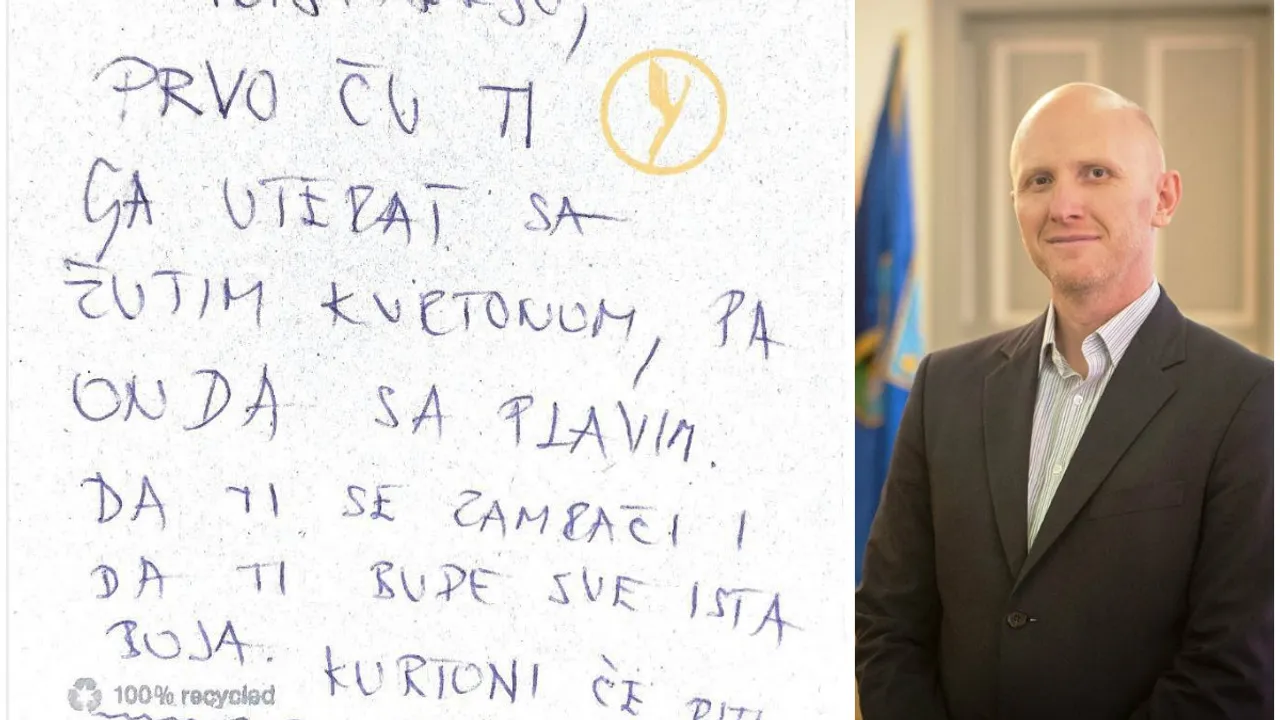 PRVO ĆU TI
GA UTERAT SA
ŽUTIM KURTONOM, PA
ONDA SA PLAVIM.
DA TI SE ZAMRAČI I
DA TI BUDE SVE ISTA
BOJA. KURTONI ČE
100% recycled